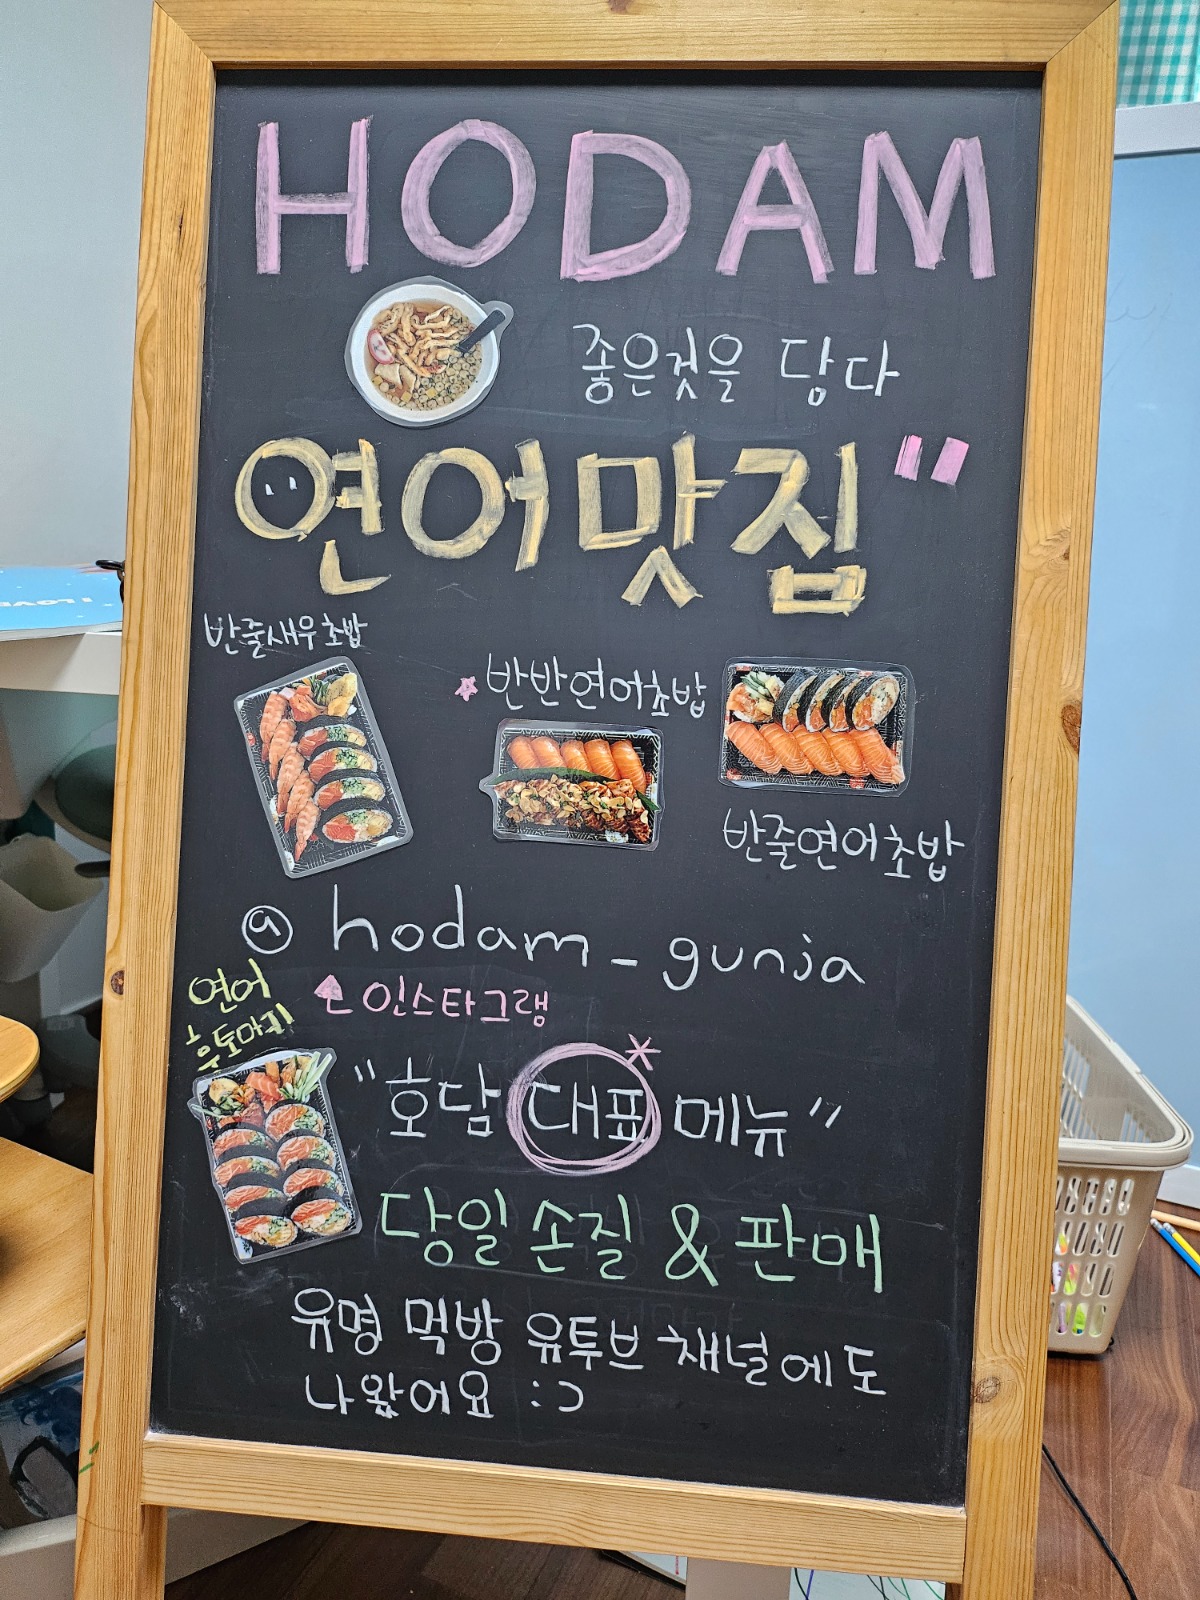 HODAM
좋은것을 담다
연어맛집"
반줄새우초밥
반반연어초밥
반줄연어초밥
@ hodam_gunja
인스타그램
연어
후토마키
"호담 대표 메뉴"
당일손질 & 판매
유명 먹방 유투브 채널에도
나왔어요 :)
I LOVE